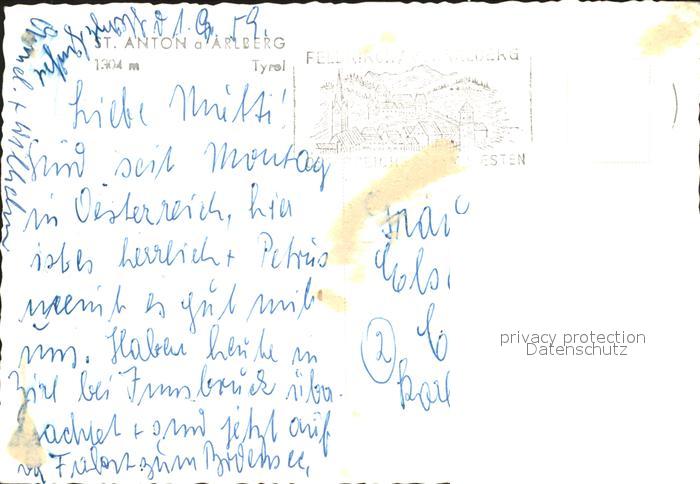 d. 1.9.59.
ST. ANTON a. ARLBERG
1304 m Tyrol
FELDKIRCH
ESTEN
Liebe Mutti!
Sind seit Montag
in Oesterreich, hier
ist es herrlich + Petrus
meint es gut mit
uns. Haben heute in
Zirl bei Innsbruck über-
nachtet + sind jetzt auf
Fahrt zum Bodensee,
+ Wilhelm
Frau
Els
(2)
privacy protection
Datenschutz